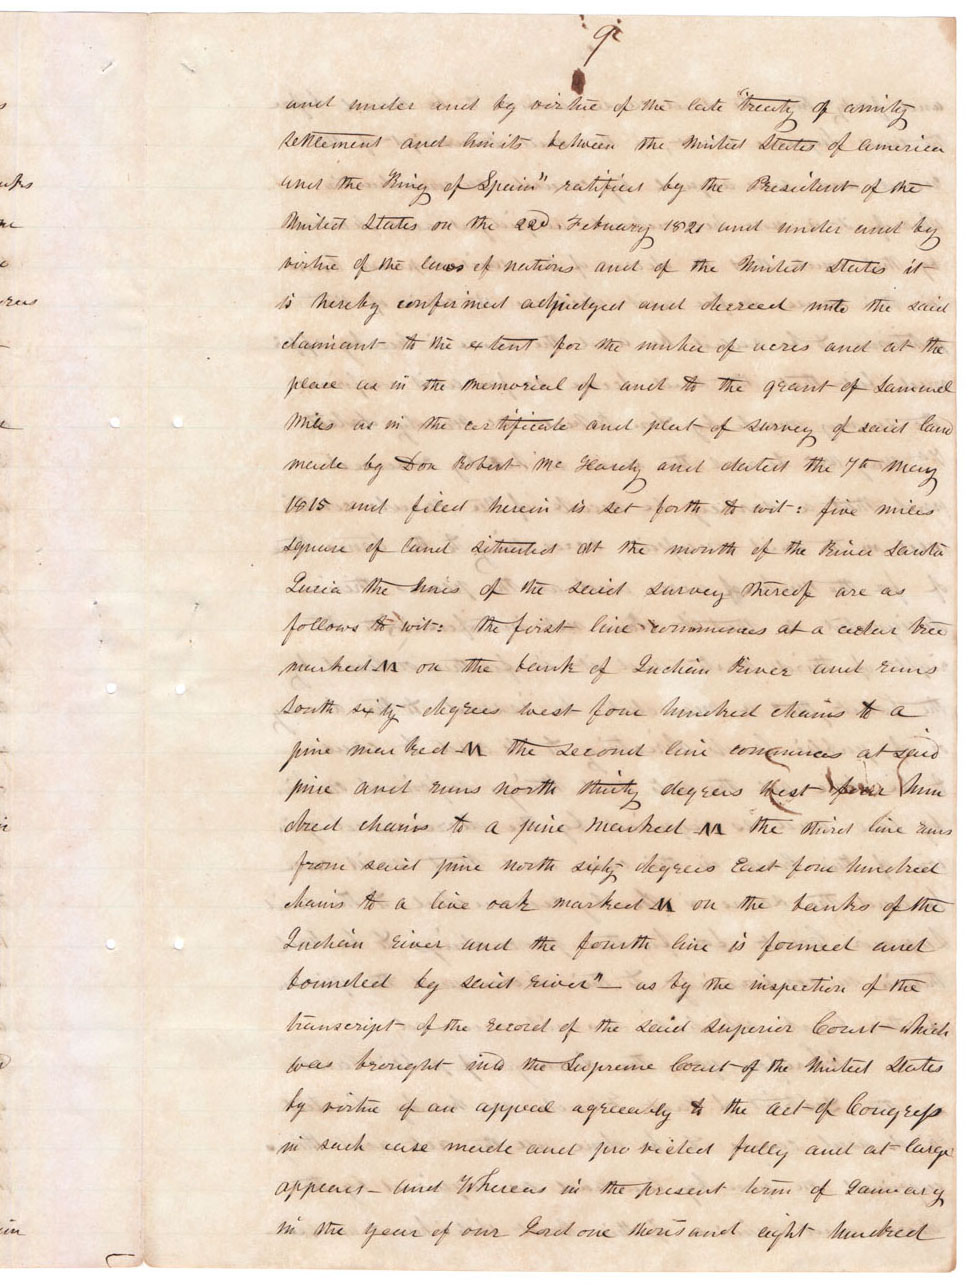 9
and under and by virtue of the late "treaty of amity
settlement and limits between the United States of America
and the King of Spain" ratified by the President of the
United States on the 22d February 1821 and under and by
virtue of the laws of nations and of the United States it
is hereby confirmed adjudged and decreed unto the said
claimant to the extent for the number of acres and at the
place as in the memorial of and to the grant of Samuel
Miles as in the certificate and plat of survey of said land
made by Don Robert McHardy and dated the 7th May
1815 and filed herein is set forth to wit: five miles
square of land situated at the mouth of the River Santa
Lucia the lines of the said survey thereof are as
follows to wit: the first line commences at a cedar tree
marked M on the bank of Indian River and runs
South sixty degrees west four hundred chains to a
pine marked M the second line commences at said
pine and runs north thirty degrees West four hun
dred chains to a pine marked M the third line runs
from said pine north sixty degrees East four hundred
chains to a live oak marked M on the banks of the
Indian river and the fourth line is formed and
bounded by said river" — as by the inspection of the
transcript of the record of the said Superior Court which
was brought into the Supreme Court of the United States
by virtue of an appeal agreeably to the act of Congress
in such case made and provided fully and at large
appears — and Whereas in the present term of January
in the year of our Lord one thousand eight hundred